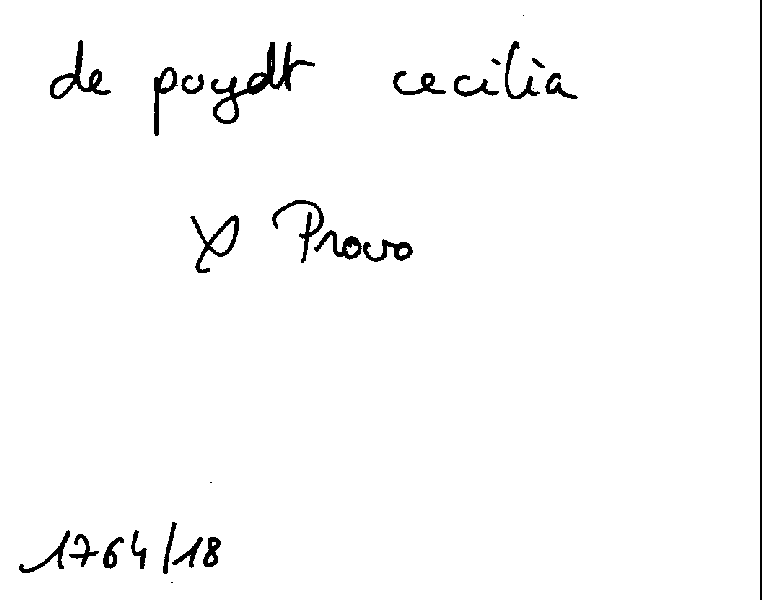 de poydt cecilia
x Provo
1764/18